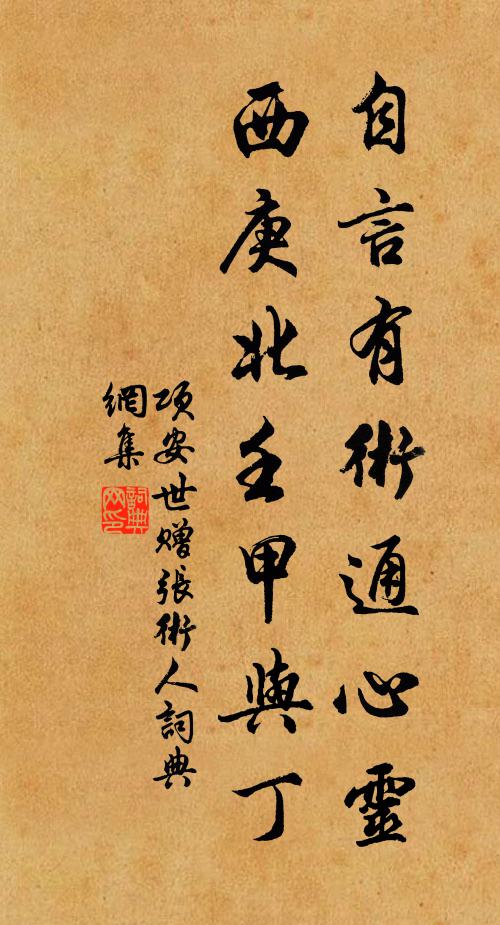 自言有術通心靈
西庚北壬甲與丁
項安世贈張術人詞典
網集
詞典
网印